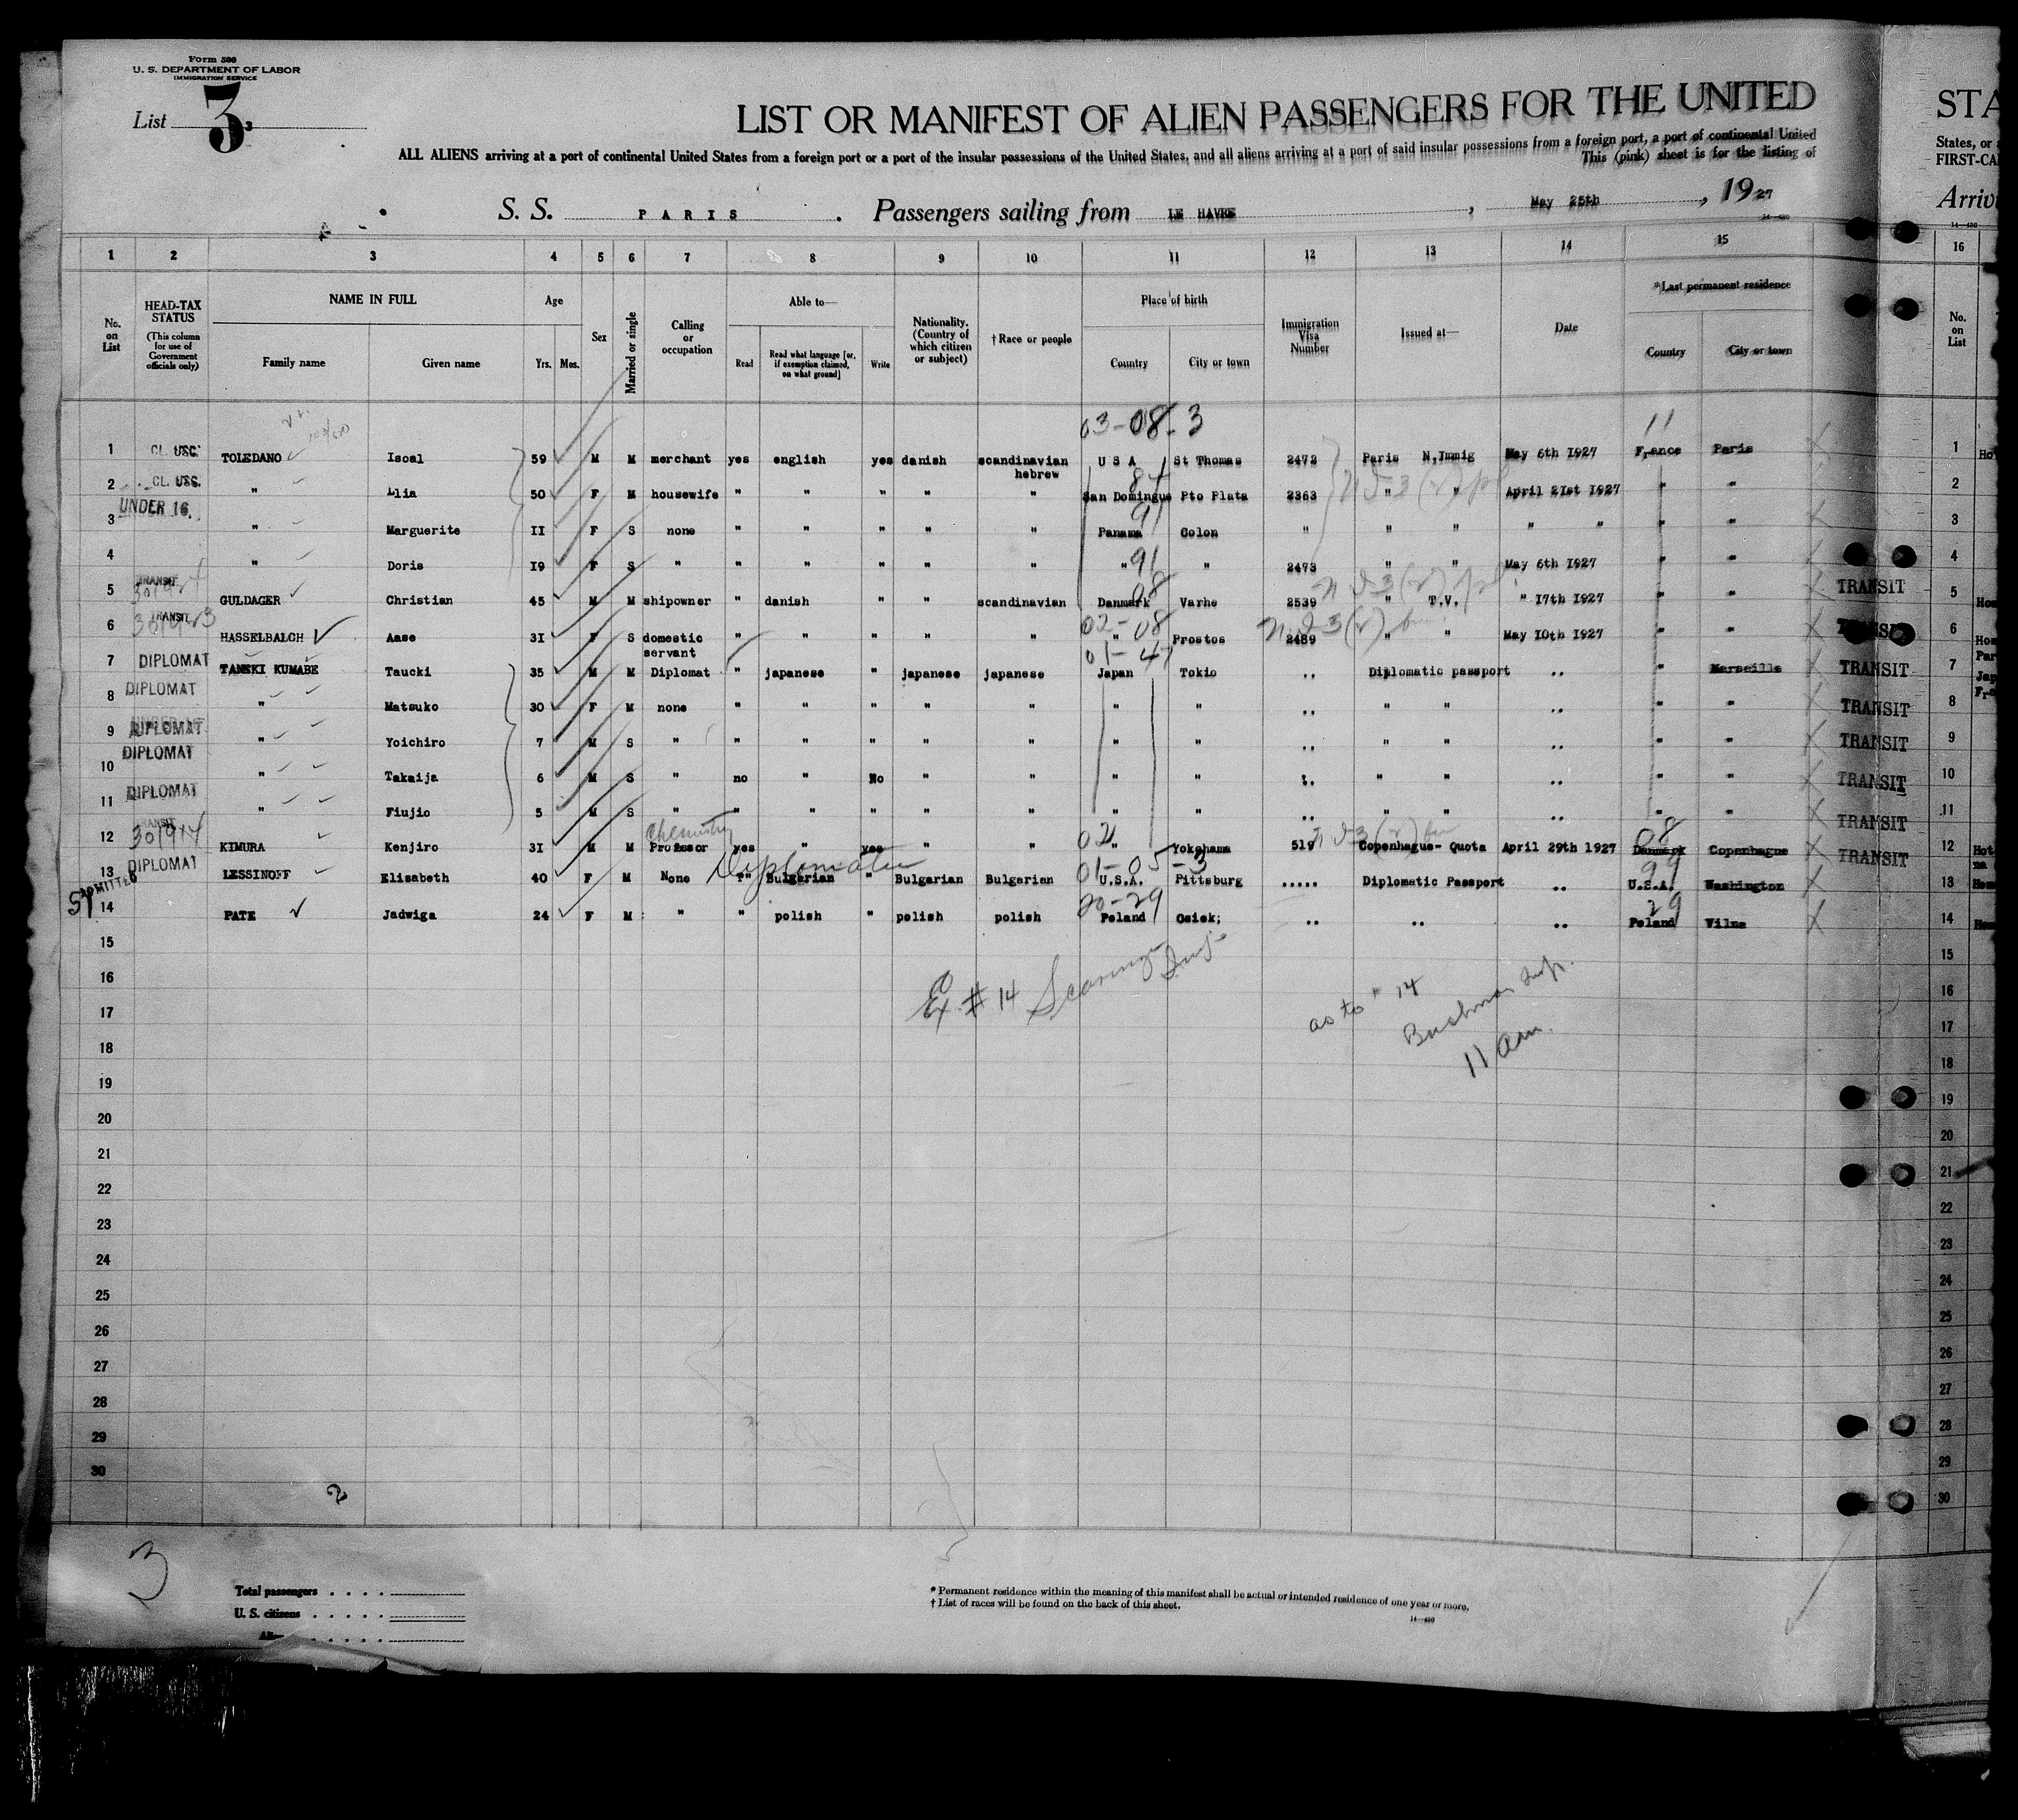 Form 500
U. S. DEPARTMENT OF LABOR
IMMIGRATION SERVICE
List 3 3
LIST OR MANIFEST OF ALIEN PASSENGERS FOR THE UNITED
STA
ALL ALIENS arriving at a port of continental United States from a foreign port or a port of the insular possessions of the United States, and all aliens arriving at a port of said insular possessions from a foreign port, a port of continental United
States, or
This (pink) sheet is for the listing of
FIRST-CA
S. S. PARIS. Passengers sailing from LE HAVRE, May 25th, 1927
Arriv
14—430
14—430
1 2 3 4 5 6 7 8 9 10 11 12 13 14 15 16
No. on List
HEAD-TAX STATUS
(This column for use of Government officials only)
NAME IN FULL
Family name
Given name
Age
Yrs. Mos.
Sex
Married or single
Calling or occupation
Able to—
Read
Read what language [or, if exemption claimed, on what ground]
Write
Nationality. (Country of which citizen or subject)
† Race or people
Place of birth
Country
City or town
Immigration Visa Number
Issued at—
Date
*Last permanent residence
Country
City or town
No. on List
03-08-3 11
1 CL. USC. TOLEDANO Isoal 59 M M merchant yes english yes danish scandinavian hebrew U S A St Thomas 2472 Paris N,Immig May 6th 1927 France Paris 1 Ho
84
2 CL. USC. " Lia 50 F M housewife " " " " " San Domingue Pto Plata 2363 " " April 21st 1927 " " 2
91
3 UNDER 16. " Marguerite II F S none " " " " " Panama Colon " " " " " " " 3
91
4 " Doris I9 F S " " " " " " " " 2473 " " May 6th 1927 " " 4
08
5 TRANSIT GULDAGER Christian 45 M M shipowner " danish " " scandinavian Danmark Varhe 2539 " T.V. " 17th 1927 " " TRANSIT 5 Hom
02-08
6 TRANSIT HASSELBALCH Aase 3I F S domestic servant " " " " " " Prostos 2489 " " May 10th 1927 " " TRANSIT 6 Hom
01-47
7 DIPLOMAT TANEKI KUMABE Taucki 35 M M Diplomat " japanese " japanese japanese Japan Tokio .. Diplomatic passport .. " Marseille TRANSIT 7 Par Jap
8 DIPLOMAT " Matsuko 30 F M none " " " " " " " .. " " .. " " TRANSIT 8 Fra
9 DIPLOMAT " Yoichiro 7 M S " " " " " " " " .. " " .. " " TRANSIT 9
10 DIPLOMAT " Takaija 6 M S " no " No " " " " .. " " .. " " TRANSIT 10
11 DIPLOMAT " Fiujio 5 M S " " " " " " " " .. " " .. " " TRANSIT 11
Chemistry 02 08
12 TRANSIT 301914 KIMURA Kenjiro 3I M M Professor yes " yes " " " Yokohama 519 Copenhague- Quota April 29th 1927 Danmark Copenhague TRANSIT 12 Hot
01-05-3 99
13 DIPLOMAT LESSINOFF Elisabeth 40 F M None " Bulgarian " Bulgarian Bulgarian U.S.A. Pittsburg ..... Diplomatic Passport .. U.S.A. Washington 13 Hom
20-29 29
14 ADMITTED PATE Jadwiga 24 F M " " polish " polish polish Poland Osiek; .. .. .. Poland Vilna 14 Hom
15 15
16 16
Ex #14
as to #14
17 17
11 am.
18 18
19 19
20 20
21 21
22 22
23 23
24 24
25 25
26 26
27 27
28 28
29 29
30 30
2
3
Total passengers
U. S. citizens
* Permanent residence within the meaning of this manifest shall be actual or intended residence of one year or more.
† List of races will be found on the back of this sheet.
14—430